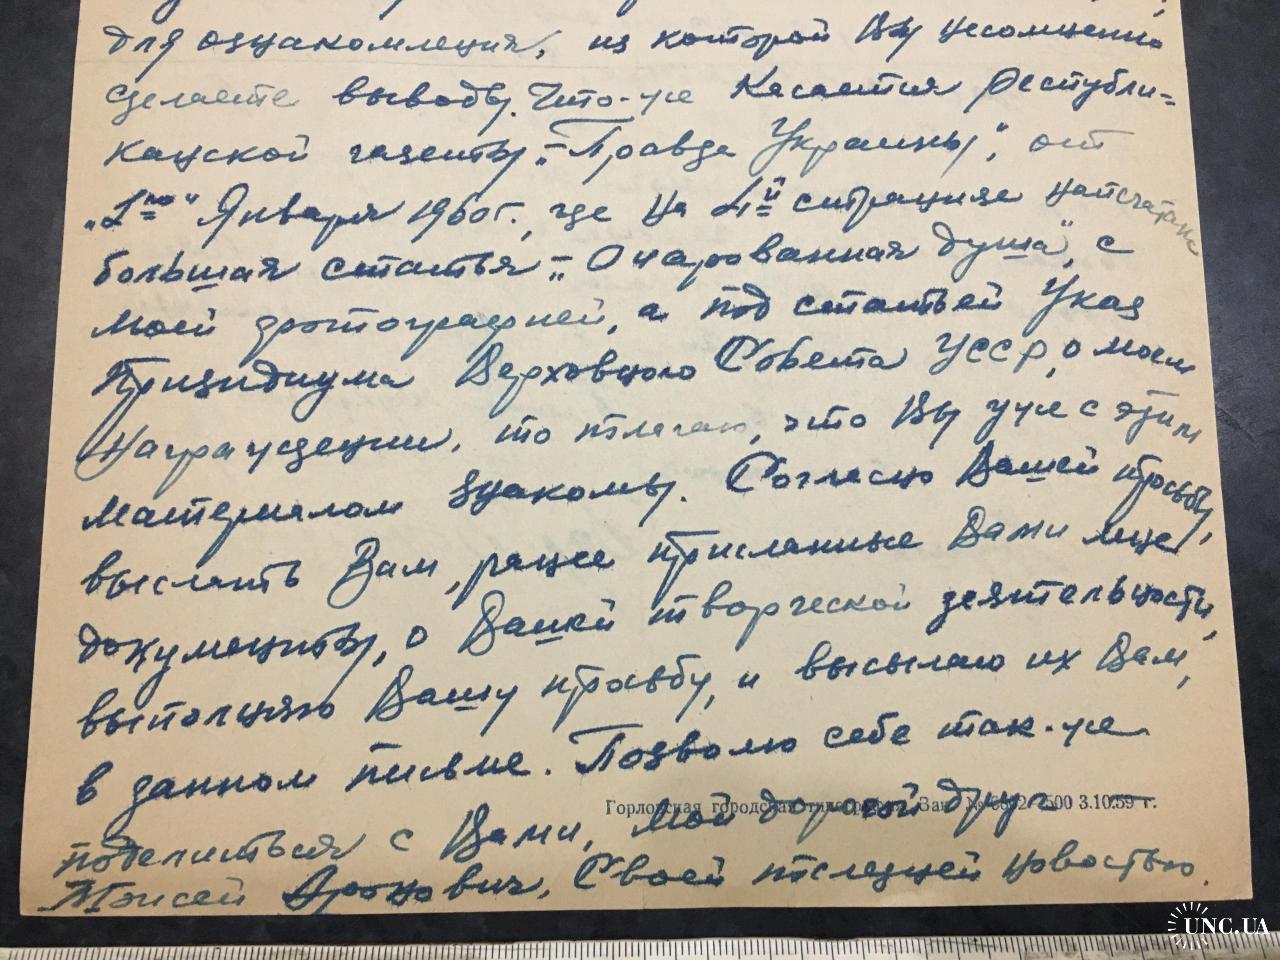 для ознакомления, из которой Вы несомненно
сделаете выводы. Что-же касается Республи-
канской газеты "Правда Украины", от
"1го" Января 1960г., где на 4й странице напечатана
большая статья "Очарованная душа", с
моей фотографией, а под статьей Указ
Призидиума Верховного Совета УССР, о моем
награждении, то плагаю, что Вы уже с этим
материалом знакомы. Согласно Вашей просьбы,
выслать Вам, ранее присланные Вами мне
документы, о Вашей творческой деятельности,
выполняю Вашу просьбу, и высылаю их Вам,
в данном письме. Позволю себе так-же
Горловская городская типография. Зак. 500 3.10.59 г.
поделиться с Вами, мой дорогой друг —
Мойсей Аронович, Своей последней новостью.
UNC.UA